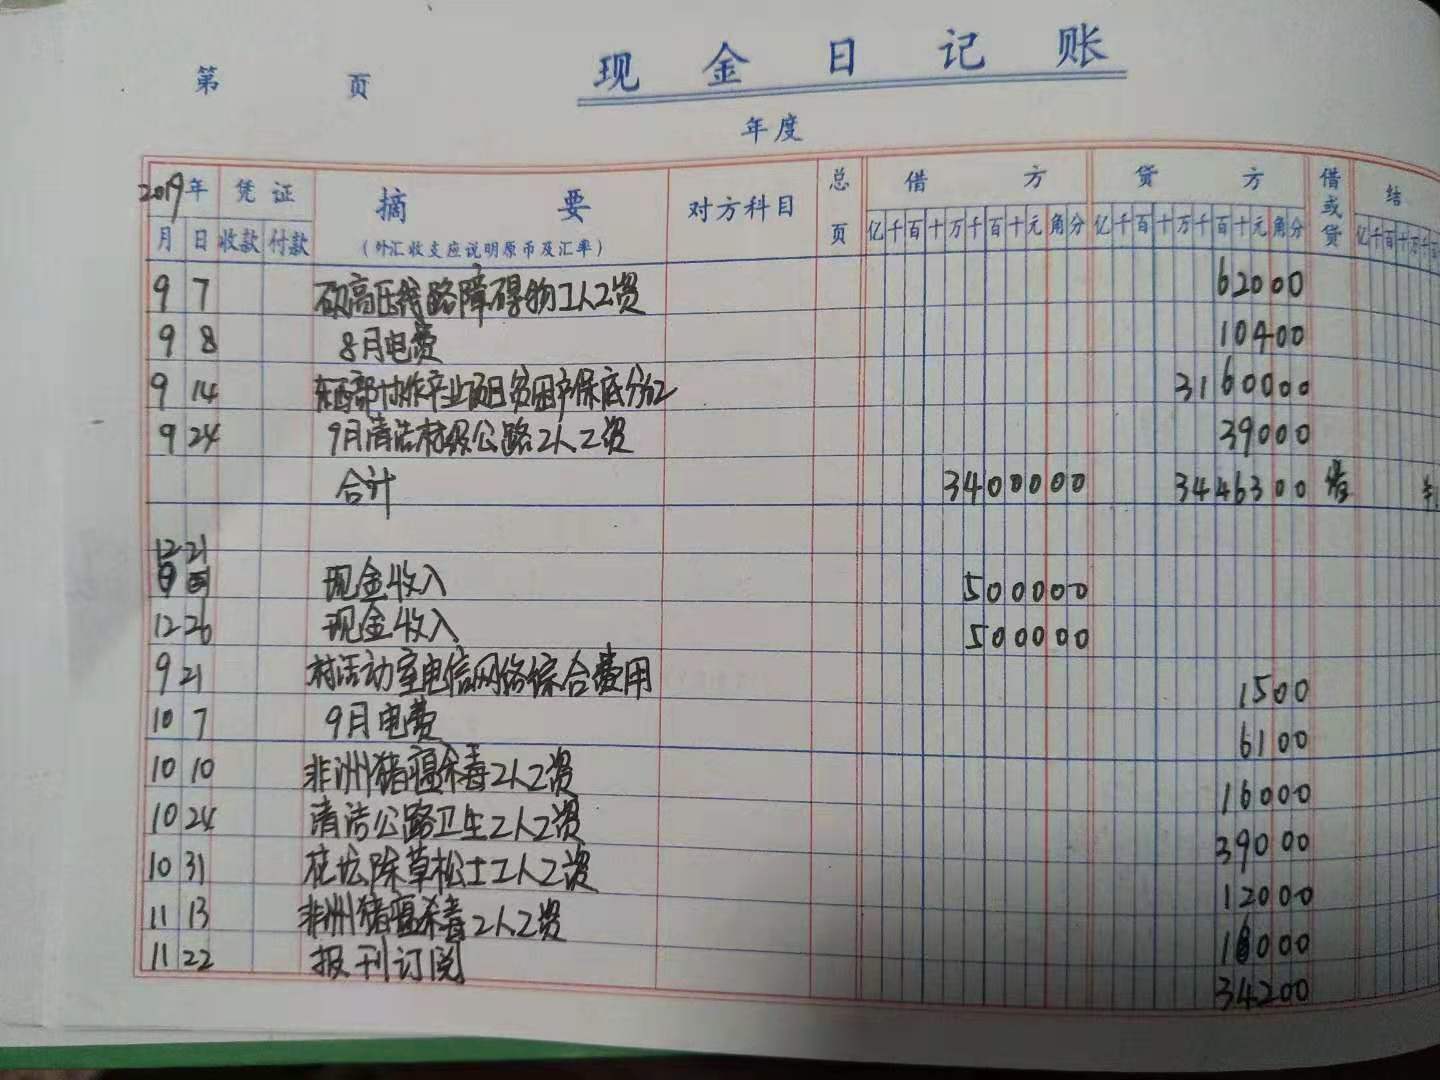 第 页 现金日记账
年度
2019年 凭证 摘要 对方科目 总页 借方 贷方 借或贷 结
月 日 收款 付款 (外汇收支应说明原币及汇率) 亿千百十万千百十元角分 亿千百十万千百十元角分 亿千百十万千
9 7 砍高压线路障碍物工人工资 62000
9 8 8月电费 10400
9 14 东西部协作产业项目贫困户保底分红 3160000
9 24 9月清洁村级公路工人工资 39000
合计 3400000 3446300 借
12 21 现金收入 500000
12 26 现金收入 500000
9 21 村活动室电信网络综合费用 1500
10 7 9月电费 6100
10 10 非洲猪瘟杀毒工人工资 16000
10 24 清洁公路卫生工人工资 39000
10 31 花坛除草松土工人工资 12000
11 13 非洲猪瘟杀毒工人工资 16000
11 22 报刊订阅 34200